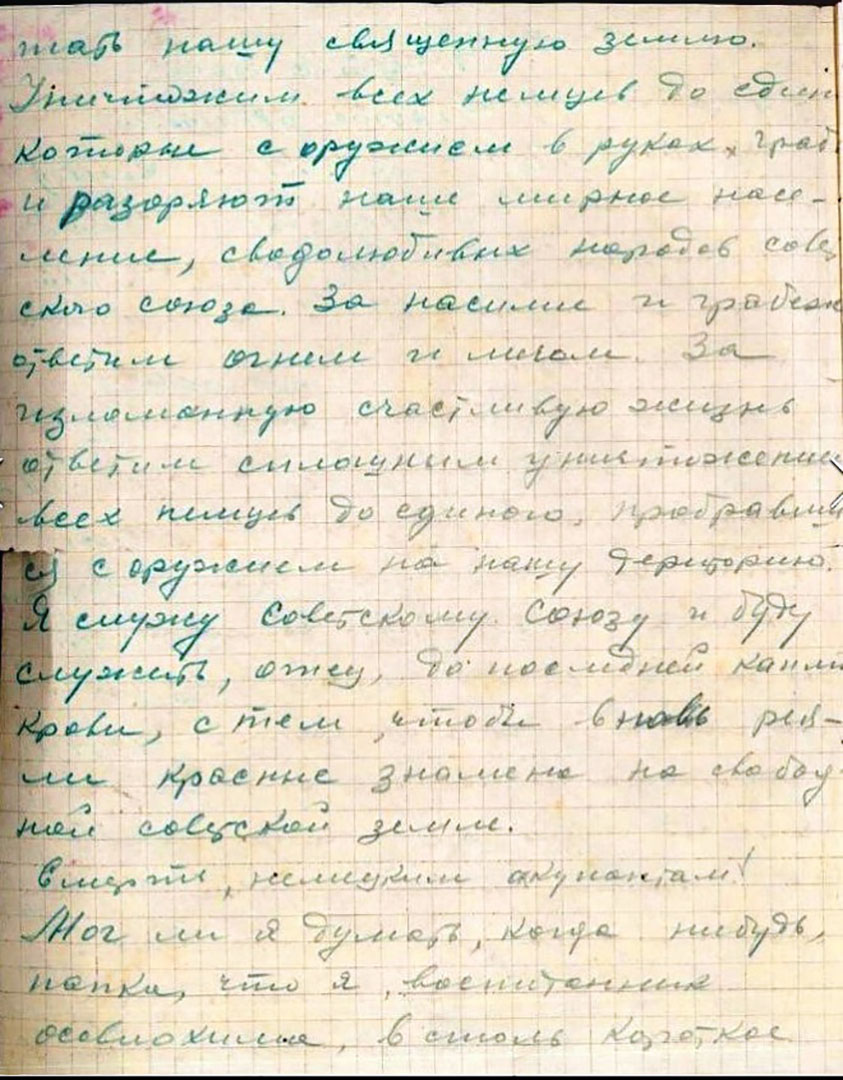 тать нашу священную землю.
Уничтожим всех немцев до един
которые с оружием в руках, граб
и разоряют наше мирное насе-
ление, сводолюбивых народов совец
ского союза. За насилие и грабеж
ответим огнем и мечом. За
изломанную счастливую жизнь
ответим сплошным уничтожением
всех немцев до единого, пробравши
ся с оружием на нашу територию.
Я служу Советскому Союзу и буду
служить, отец, до последней капли
крови, с тем, чтобы вновь рея-
ли красные знамена на свобод-
ной совецкой земле.
Смерть, немецким окупантам!
Мог ли я думать, когда нибудь,
папка, что я, воспитанник
осовиохима, в столь короткое